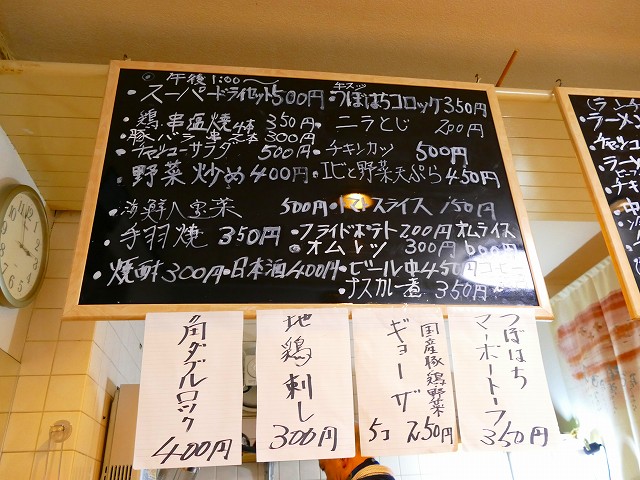 午後1:00〜
・スーパードライセット500円
・鶏串塩焼4本 350円
・豚バラ串 300円
・チャーシューサラダ 500円
・野菜炒め 400円
・海鮮八宝菜 500円
・手羽焼 350円
・焼酎300円・日本酒400円・ビール中450円
・つぼはちコロッケ350円
・ニラとじ 200円
・チキンカツ 500円
・エビと野菜天ぷら 450円
・トマトスライス 150円
・フライドポテト200円 オムライス
・オムレツ 300円 600円
・ナスカレー煮 350円
角ダブルロック
400円
地鶏刺し
300円
国産豚鶏野菜
ギョーザ
5コ 250円
つぼはち
マーボートーフ
350円